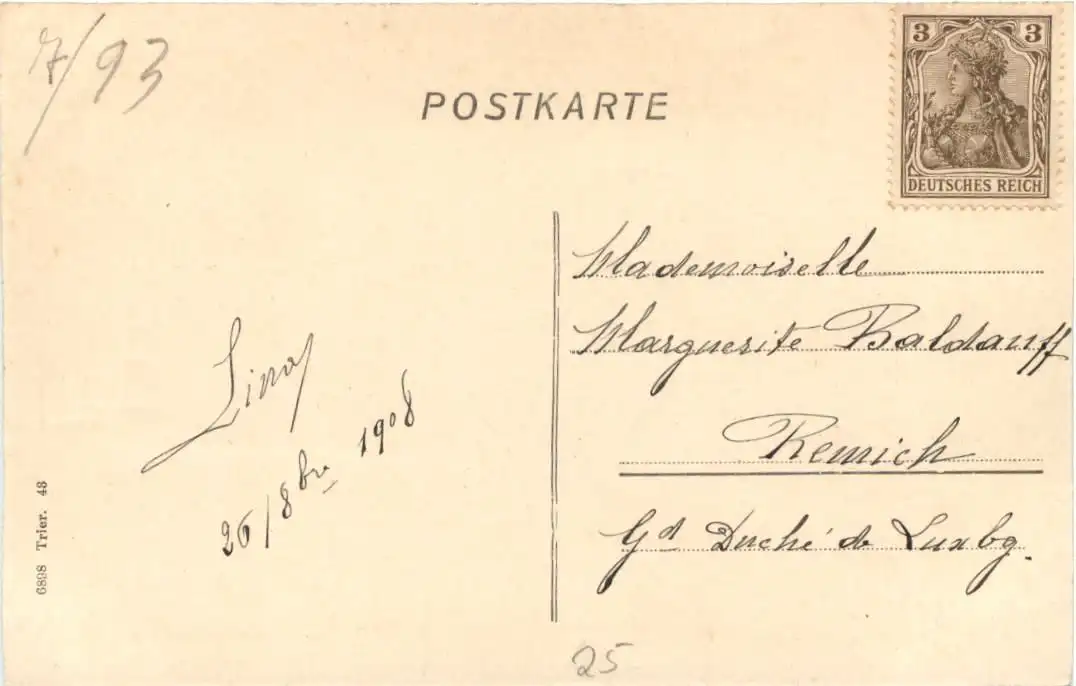 7/93
POSTKARTE
3 3
DEUTSCHES REICH
Mademoiselle
Marguerite Baldauff
Remich
Gd Duché de Luxbg.
Lina
26/8bre 1908
6898 Trier. 48
25